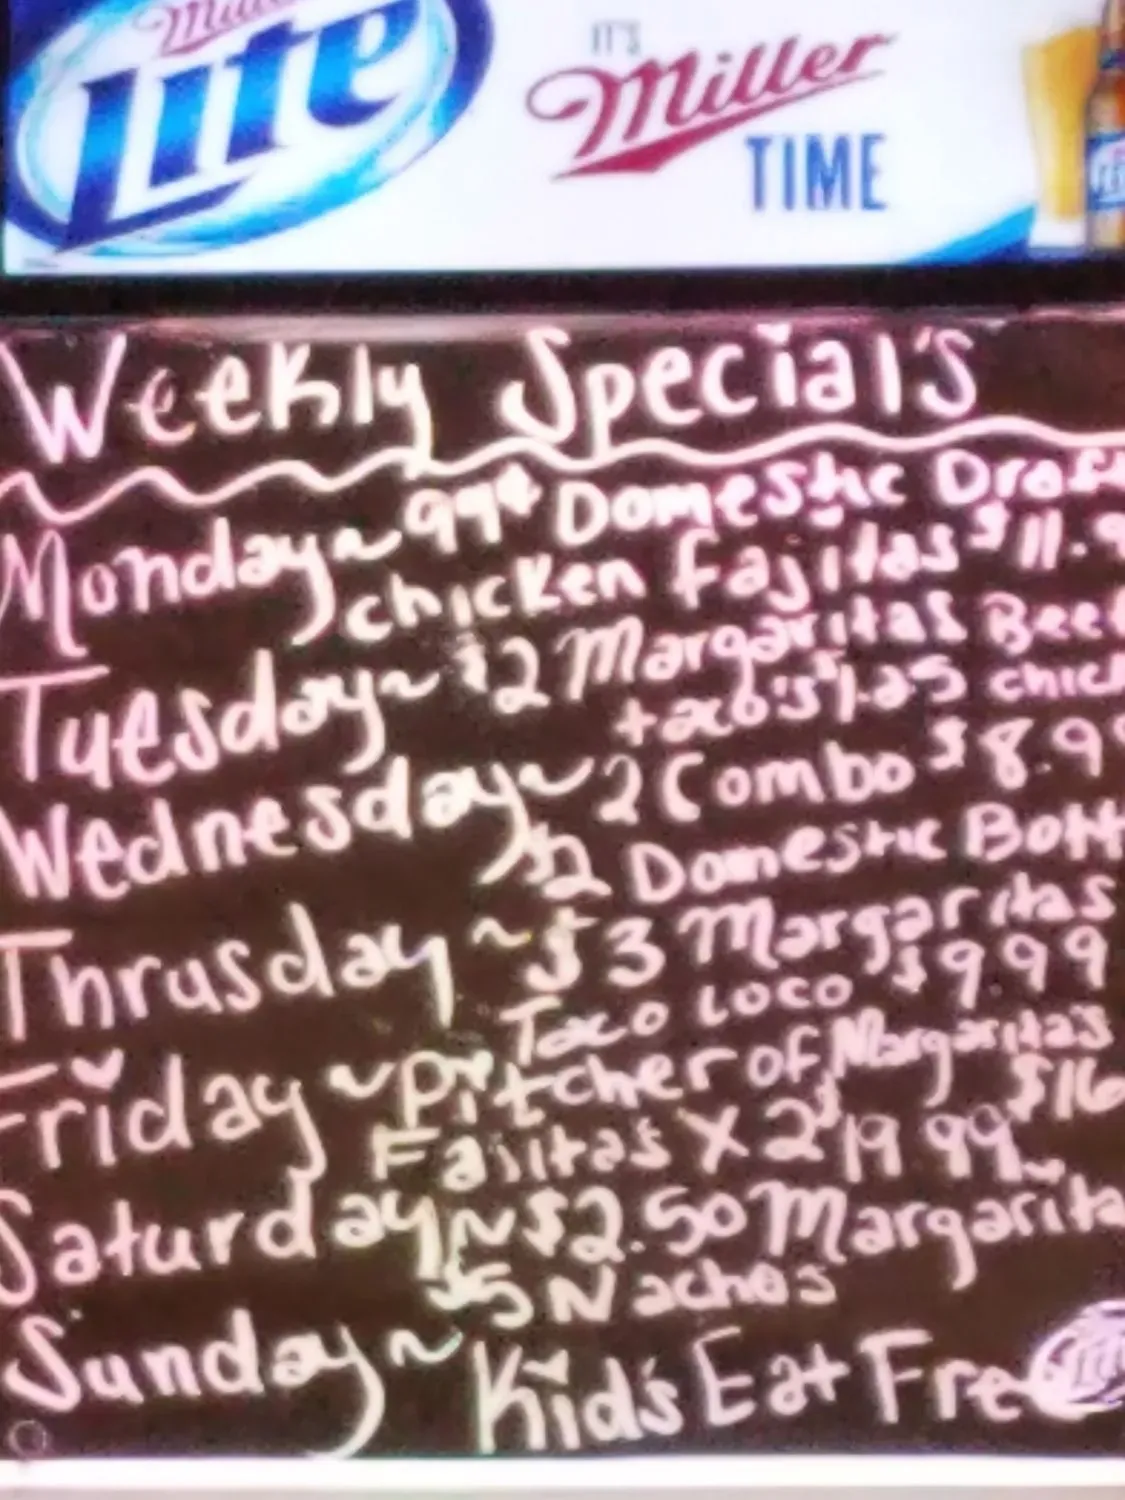 Miller
Lite
IT'S
Miller
TIME
Weekly Special's
Monday~99¢ Domestic Draft
chicken fajitas $11.9
Tuesday~$2 Margaritas Beef
taco's $1.25 chick
Wednesday~2 Combo $8.99
$2 Domestic Bott
Thrusday~$3 Margaritas
Taco Loco $9.99
Friday~Pitcher of Margarita's
$16
Fajita's X 2 $19.99
Saturday~$2.50 Margarita
$5 Nachos
Sunday~Kid's Eat Free
Lite